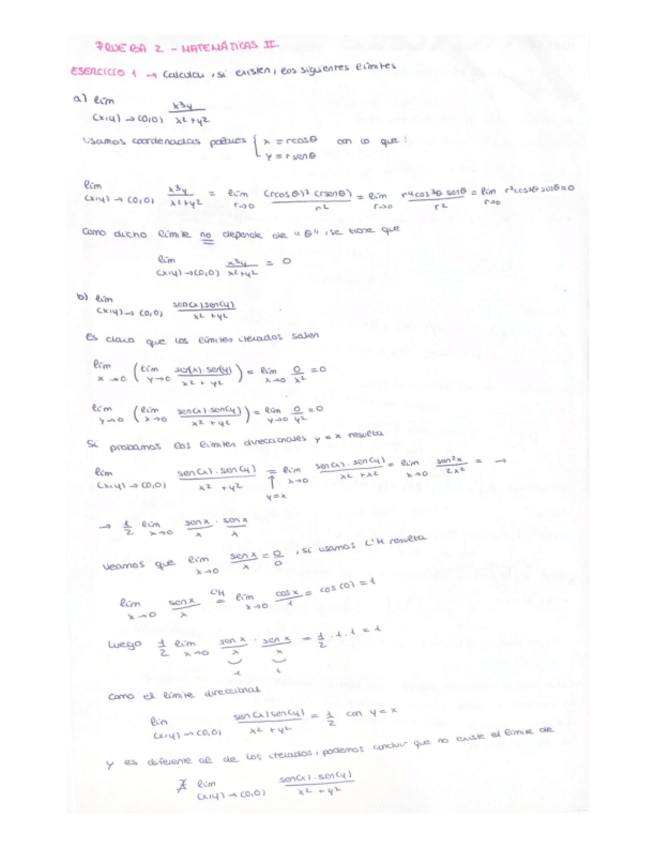 PRUEBA 2 - MATEMÁTICAS II
EJERCICIO 1 → Calcular, si existen, los siguientes límites
a) lim (x,y)→(0,0) x³y / x²+y²
Usamos coordenadas polares { x = rcosθ y = rsenθ con lo que:
lim (x,y)→(0,0) x³y / x²+y² = lim r→0 (rcosθ)³ (rsenθ) / r² = lim r→0 r⁴cos³θ senθ / r² = lim r→0 r²cos³θ senθ = 0
Como dicho límite no depende de "θ", se tiene que
lim (x,y)→(0,0) x³y / x²+y² = 0
b) lim (x,y)→(0,0) sen(x)sen(y) / x²+y²
Es claro que los límites iterados salen
lim x→0 ( lim y→0 sen(x)·sen(y) / x²+y² ) = lim x→0 0/x² = 0
lim y→0 ( lim x→0 sen(x)·sen(y) / x²+y² ) = lim y→0 0/y² = 0
Si probamos los límites direccionales y=x resulta
lim (x,y)→(0,0) sen(x)·sen(y) / x²+y² = lim x→0 sen(x)·sen(y) / x²+x² = lim x→0 sen²x / 2x² = →
↑ y=x
→ 1/2 lim x→0 senx/x · senx/x
Veamos que lim x→0 senx/x = 0/0, si usamos L'H resulta
lim x→0 senx/x =L'H lim x→0 cosx/1 = cos(0) = 1
Luego 1/2 lim x→0 senx/x · senx/x = 1/2 · 1 · 1 = 1
1 1
Como el límite direccional
lim (x,y)→(0,0) sen(x)sen(y) / x²+y² = 1/2 con y=x
y es diferente al de los iterados, podemos concluir que no existe el límite de
∄ lim (x,y)→(0,0) sen(x)·sen(y) / x²+y²